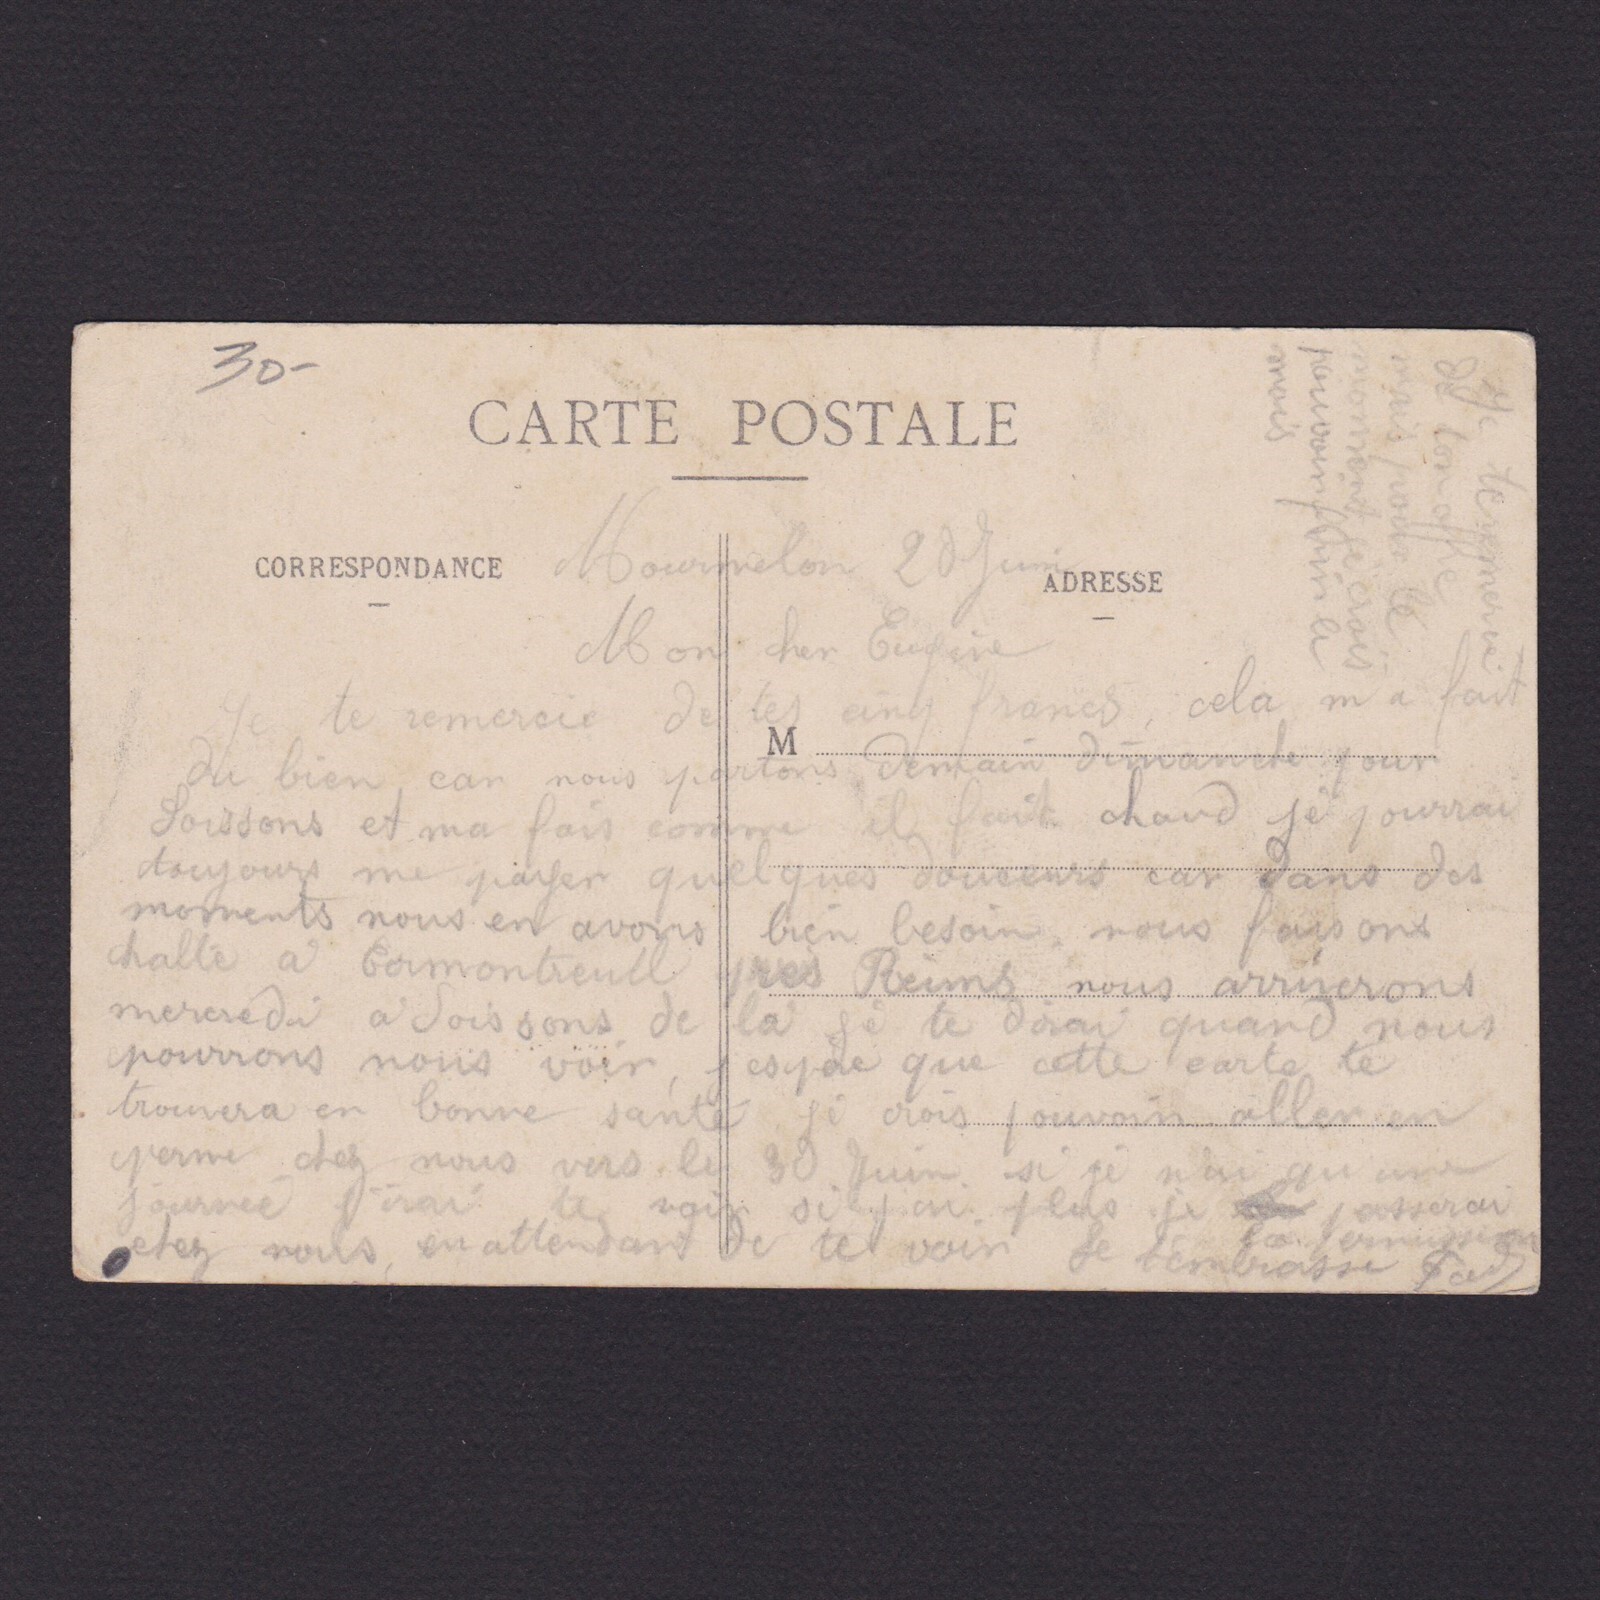 30-
CARTE POSTALE
CORRESPONDANCE
ADRESSE
Mourmelon 20 Juin
Mon cher Eugène
Je te remercie de tes cinq francs, cela m a fait
du bien car nous partons demain dimanche pour
M
Soissons et ma fois comme il fait chaud je pourrai
toujours me payer quelques douceurs car dans des
moments nous en avons bien besoin, nous faisons
halte a Cormontreuil près Reims nous arriverons
mercredi a Soissons de la je te dirai quand nous
pourrons nous voir, j espere que cette carte te
trouvera en bonne santé je crois pouvoir aller en
perme chez nous vers le 30 Juin si je n'ai qu une
journeé j irai te voir si j ai plus je passerai
la permission
chez nous, en attendant de te voir Je t'embrasse
Je te remercie
de ton offre
mais pour le
moment je crois
pouvoir finir le
mois